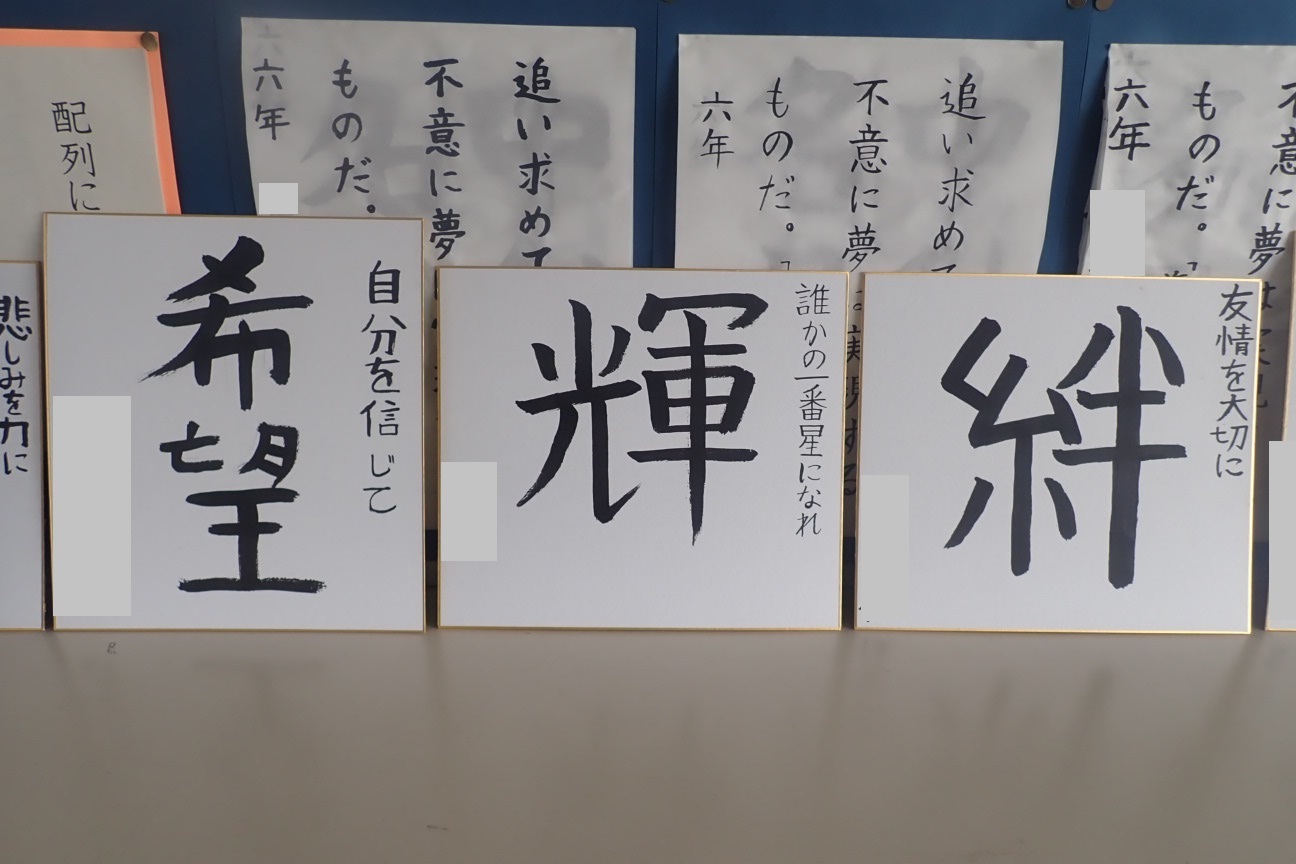 配列に
追い求めて
不意に夢
ものだ。
六年
追い求めて
不意に夢は実現する
ものだ。「
六年
不意に夢は
ものだ。「
六年
自分を信じて
希望
誰かの一番星になれ
輝
友情を大切に
絆
悲しみを力に